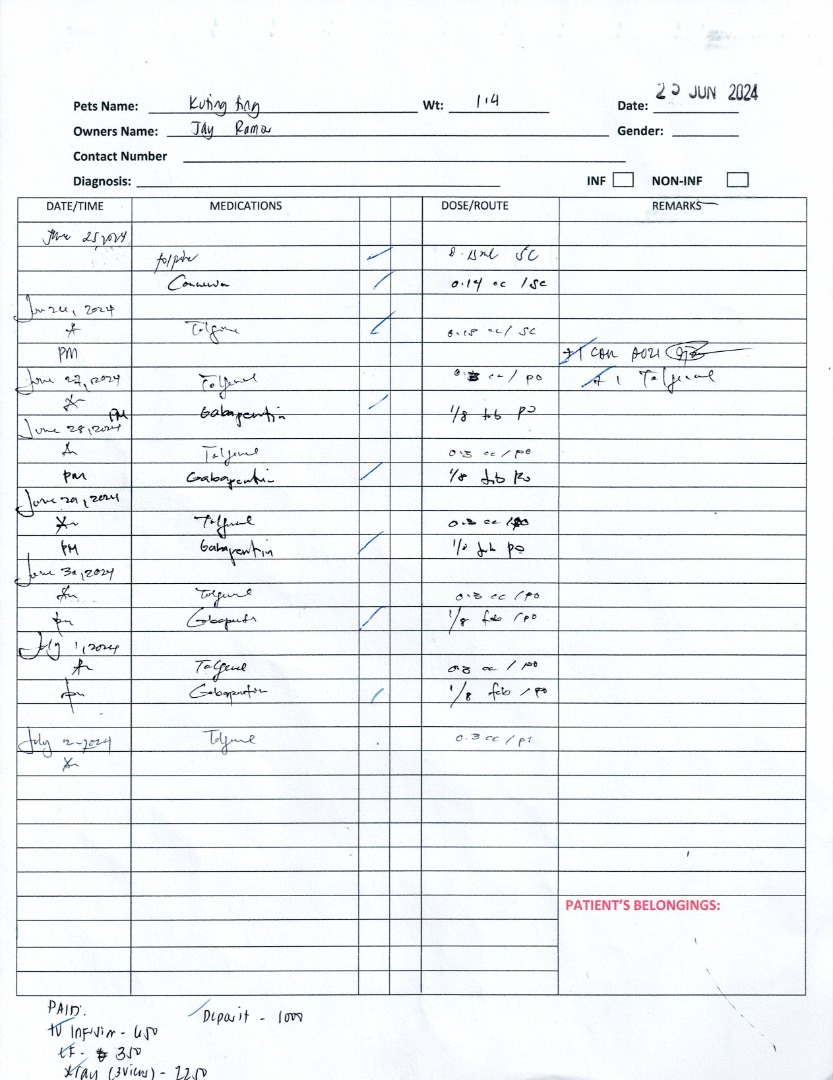 Pets Name: Kuting ting Wt: 1.4 Date: 25 JUN 2024
Owners Name: Jay Ramos Gender:
Contact Number
Diagnosis: INF NON-INF
DATE/TIME MEDICATIONS DOSE/ROUTE REMARKS
June 25, 2024
0.15ml SC
0.14 cc / SC
2024
Tolfgene 0.15 cc / SC
PM
June 27, 2024 Tolfgene 0.3 cc / PO # 1 Tolfgene
PM Gabapentin 1/8 tab PO
June 28, 2024
Tolfgene 0.3 cc / PO
PM Gabapentin 1/8 tab PO
June 29, 2024
Tolfgene 0.3 cc / PO
PM Gabapentin 1/8 tab PO
June 30, 2024
Am Tolfgene 0.3 cc / PO
pm Gabapentin 1/8 tab / PO
July 1, 2024
Am Tolfgene 0.3 cc / PO
pm Gabapentin 1/8 tab / PO
July 2, 2024 Tolfgene 0.3 cc / PO
PATIENT'S BELONGINGS:
PAID: Deposit - 1000
IV Infusion - 450
CF - 350
Xray (3 views) - 2250